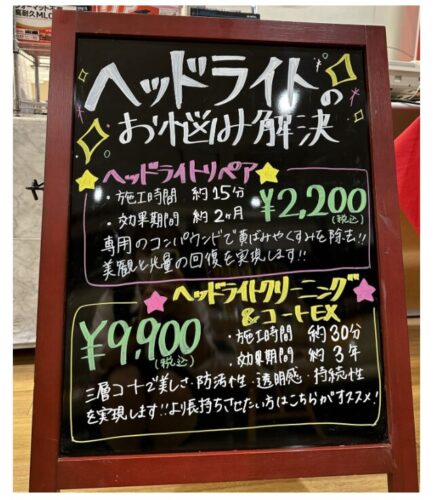 ヘッドライトの
お悩み解決
ヘッドライトリペア
・施工時間 約15分
・効果期間 約2ヶ月
¥2,200
(税込)
専用のコンパウンドで黄ばみやくすみを除去!!
美観と光量の回復を実現します!!
ヘッドライトクリーニング
&コートEX
¥9,900
(税込)
・施工時間 約30分
・効果期間 約3年
三層コートで美しさ・防汚性・透明感・持続性
を実現します!!より長持ちさせたい方はこちらがオススメ!